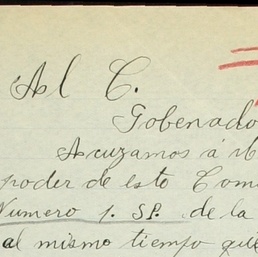 Al C.
Gobenado
Acuzamos á
poder de esto Com
Numero 1. SP. de la
al mismo tiempo que